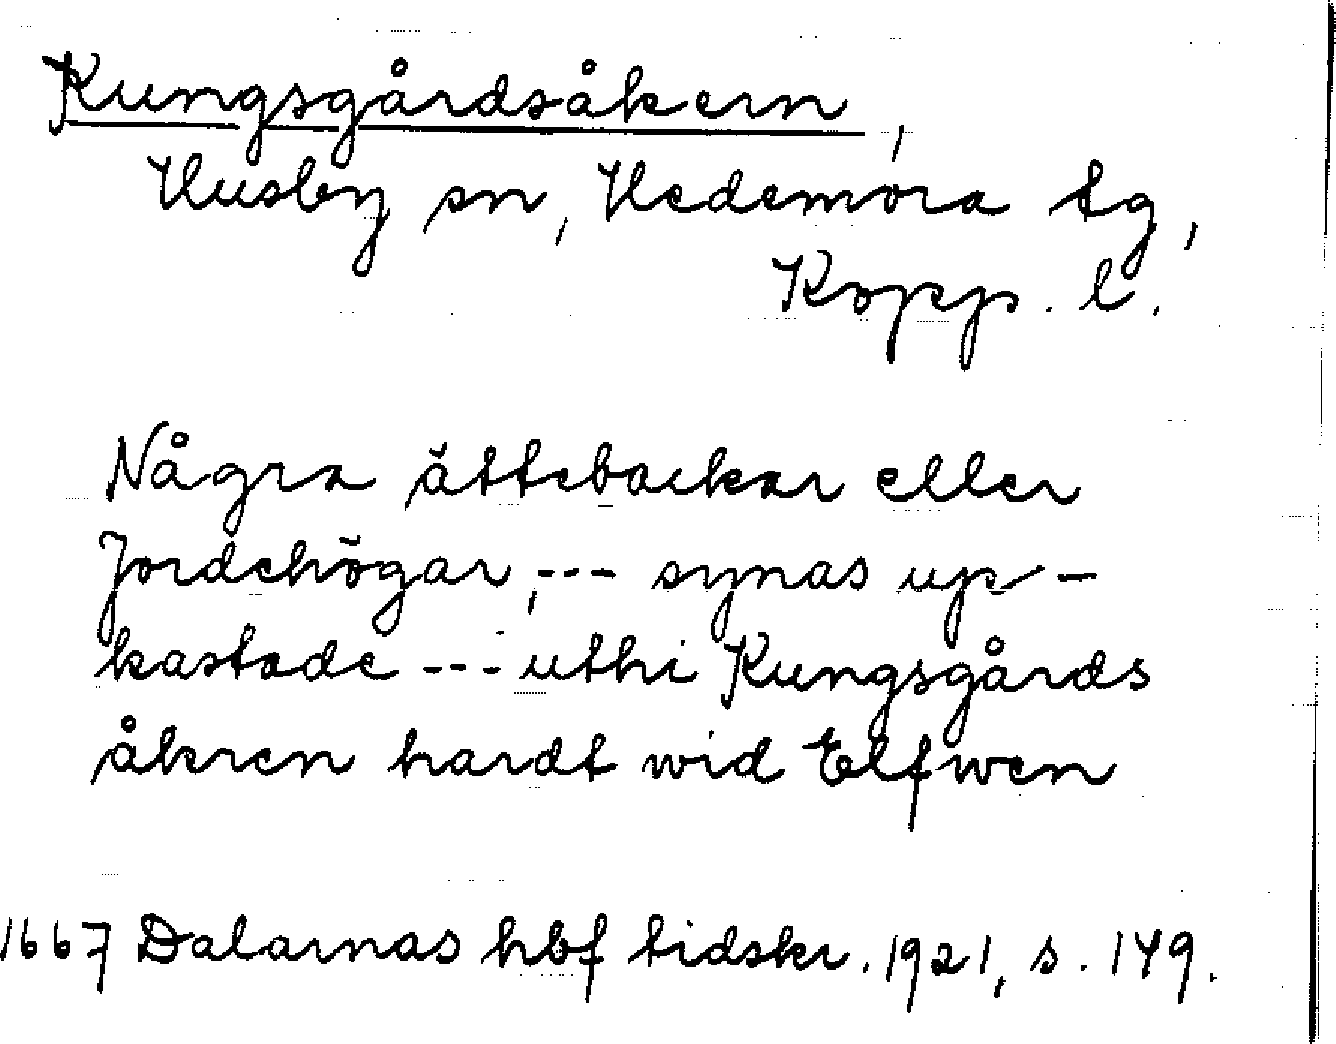 Kungsgårdsåkern,
Husby sn, Hedemora tg,
Kopp. l.
Några ättebackar eller
Jordehögar, --- synas up-
kastade --- uthi Kungsgårds
åkren hardt wid Elfwen
1667 Dalarnas hbf tidskr. 1921, s. 149.